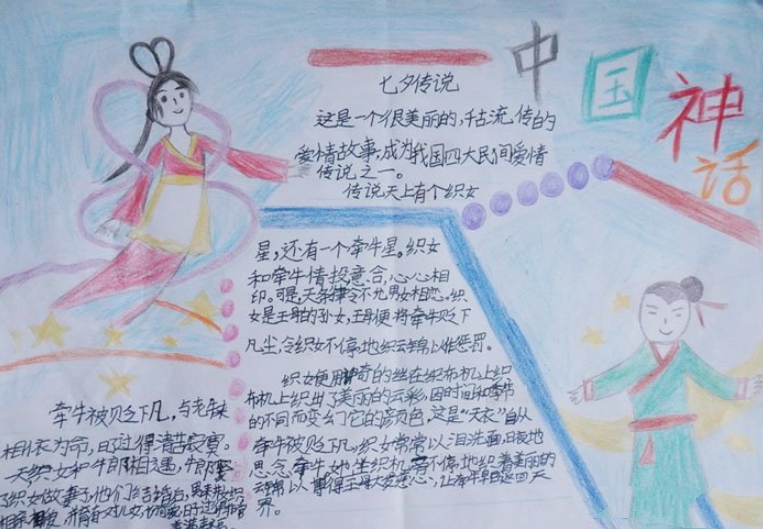 中国神话
七夕传说
这是一个很美丽的,千古流传的
爱情故事,成为我国四大民间爱情
传说之一。
传说天上有个织女
星,还有一个牵牛星。织女
和牵牛情投意合,心心相
印。可是,天条律令不允男女相恋。织
女是王母的孙女,王母便将牵牛贬下
凡尘,令织女不停地织云锦以作惩罚。
织女便用神奇的丝在织布机上织
布机上织出了美丽的云彩,因时间和季节
的不同而变幻它的颜色,这是“天衣”自从
牵牛被贬下凡,织女常常以泪洗面,日夜地
思念牵牛她坐织机,不停地织着美丽的
云锦以博得王母大发慈心,让牵牛早日返回天
界。
牵牛被贬下凡,与老牛
相依为命,日子过得清苦寂寞。
一天织女和牛郎相遇,牛郎
了织女做妻子,他们结婚后,男耕女织